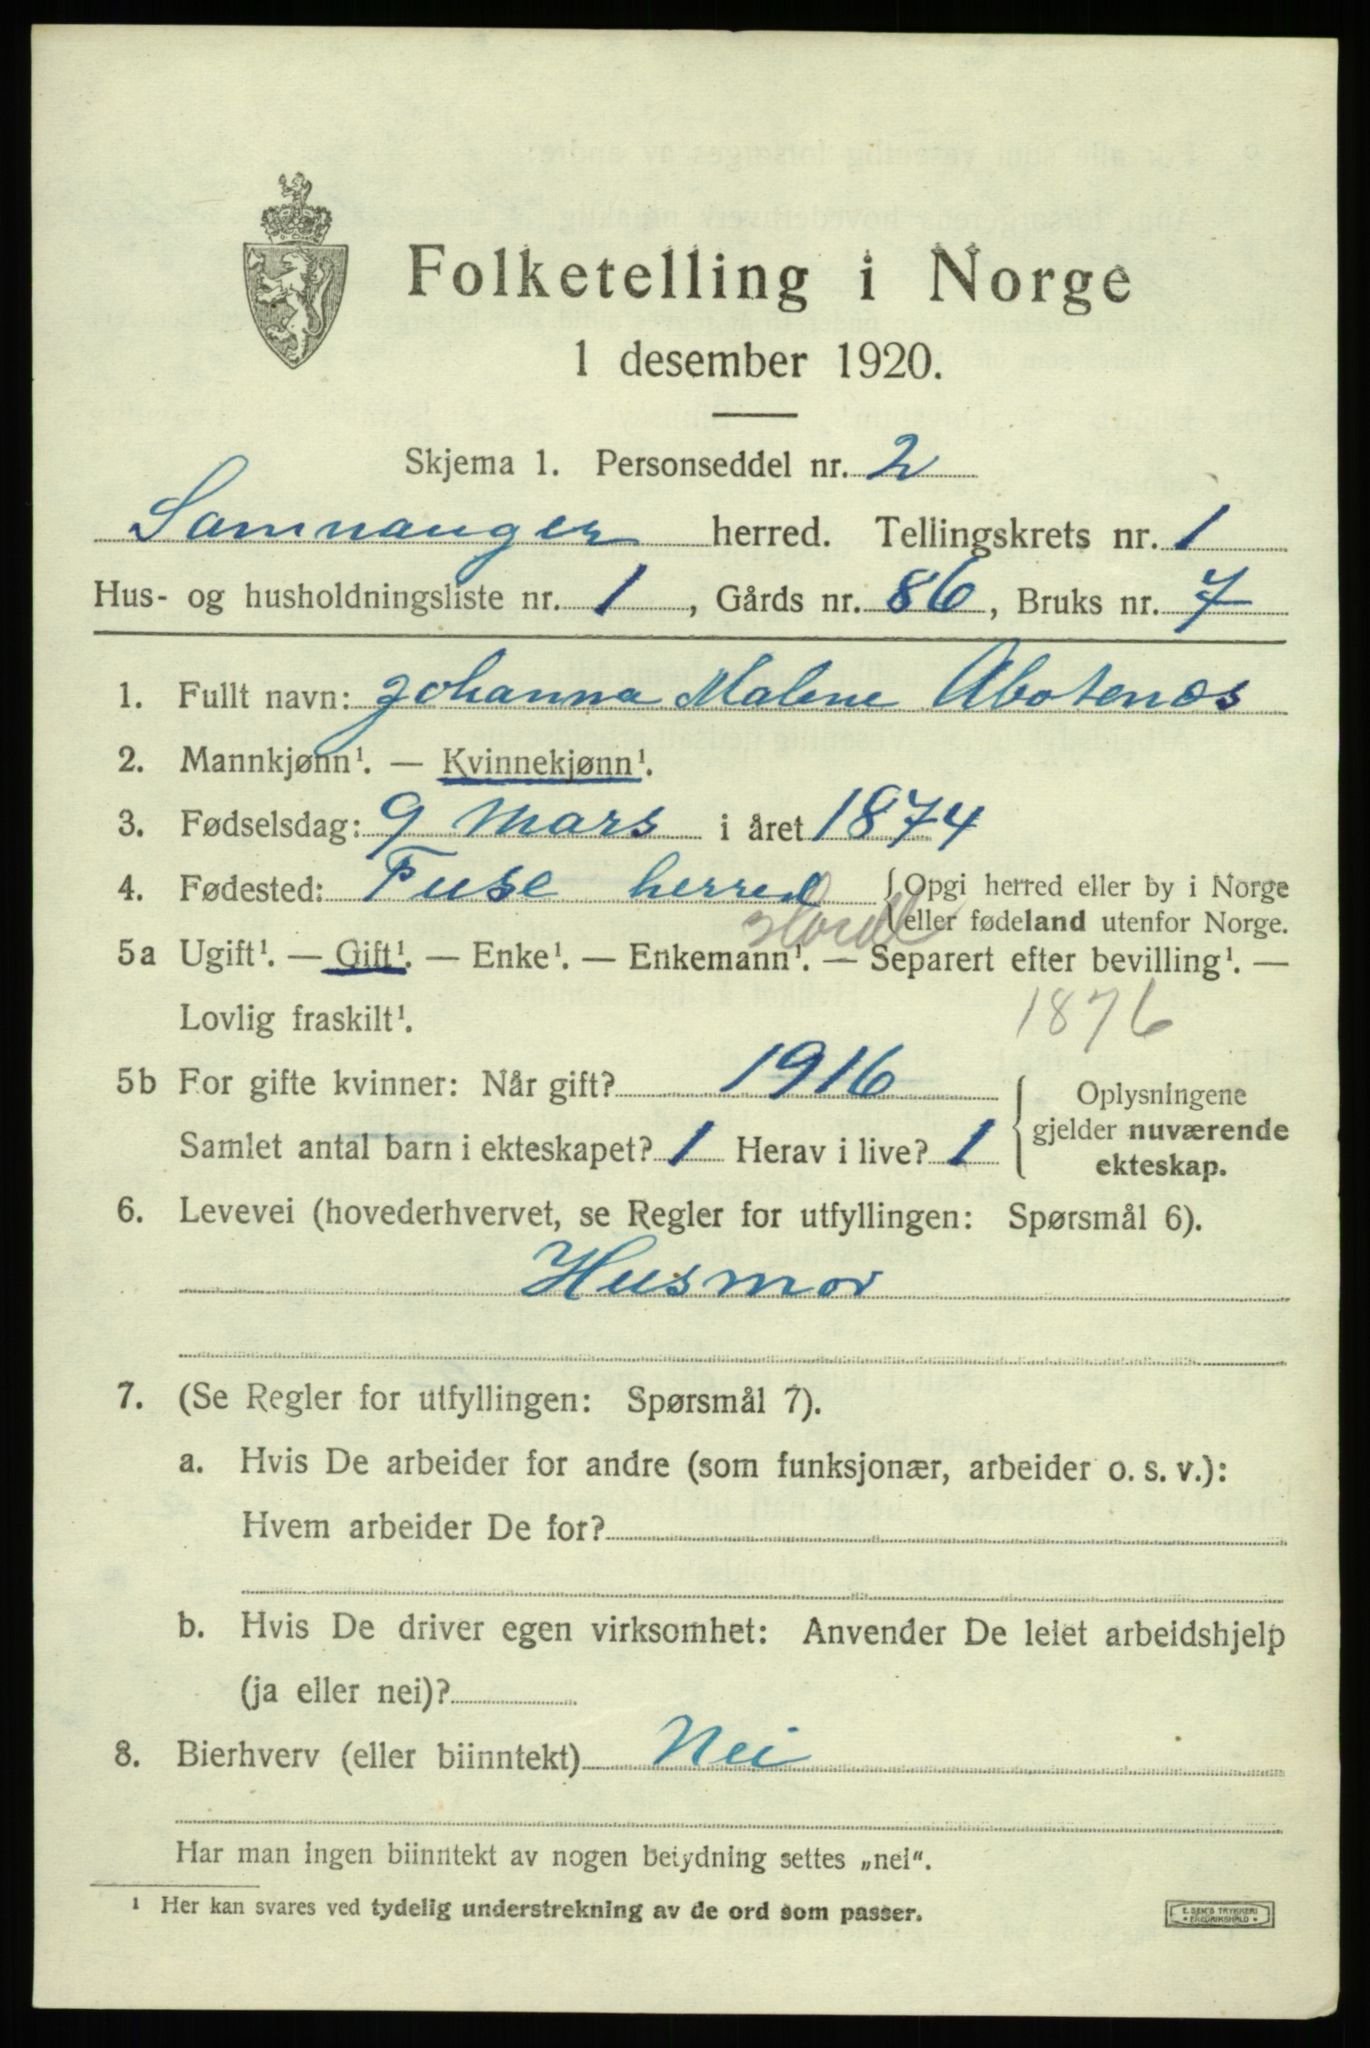 Folketelling i Norge
1 desember 1920.
Skjema 1. Personseddel nr. 2
Samnanger herred. Tellingskrets nr. 1
Hus- og husholdningsliste nr. 1, Gårds nr. 86, Bruks nr. 7
1. Fullt navn: Johanna Malene Abotenes
2. Mannkjønn¹. — Kvinnekjønn¹.
3. Fødselsdag: 9 Mars i året 1874
4. Fødested: Fuse herred {Opgi herred eller by i Norge
eller fødeland utenfor Norge.
Hordl
5a Ugift¹. — Gift¹. — Enke¹. — Enkemann¹. — Separert efter bevilling¹. —
Lovlig fraskilt¹.
1876
5b For gifte kvinner: Når gift? 1916
Samlet antal barn i ekteskapet? 1 Herav i live? 1
{Oplysningene
gjelder nuværende
ekteskap.
6. Levevei (hovederhvervet, se Regler for utfyllingen: Spørsmål 6).
Husmor
7. (Se Regler for utfyllingen: Spørsmål 7).
a. Hvis De arbeider for andre (som funksjonær, arbeider o. s. v.):
Hvem arbeider De for?
b. Hvis De driver egen virksomhet: Anvender De leiet arbeidshjelp
(ja eller nei)?
8. Bierhverv (eller biinntekt) Nei
Har man ingen biinntekt av nogen betydning settes „nei“.
¹ Her kan svares ved tydelig understrekning av de ord som passer.
E. SEM'S TRYKKERI
• FREDRIKSHALD •